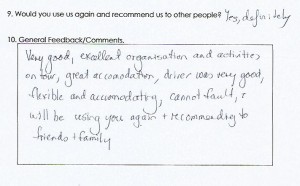 9. Would you use us again and recommend us to other people? Yes, definitely
10. General Feedback/Comments.
Very good, excellent organisation and activities
on tour, great accomodation, driver was very good,
flexible and accomodating, cannot fault, I
will be using you again + recommending to
friends + family